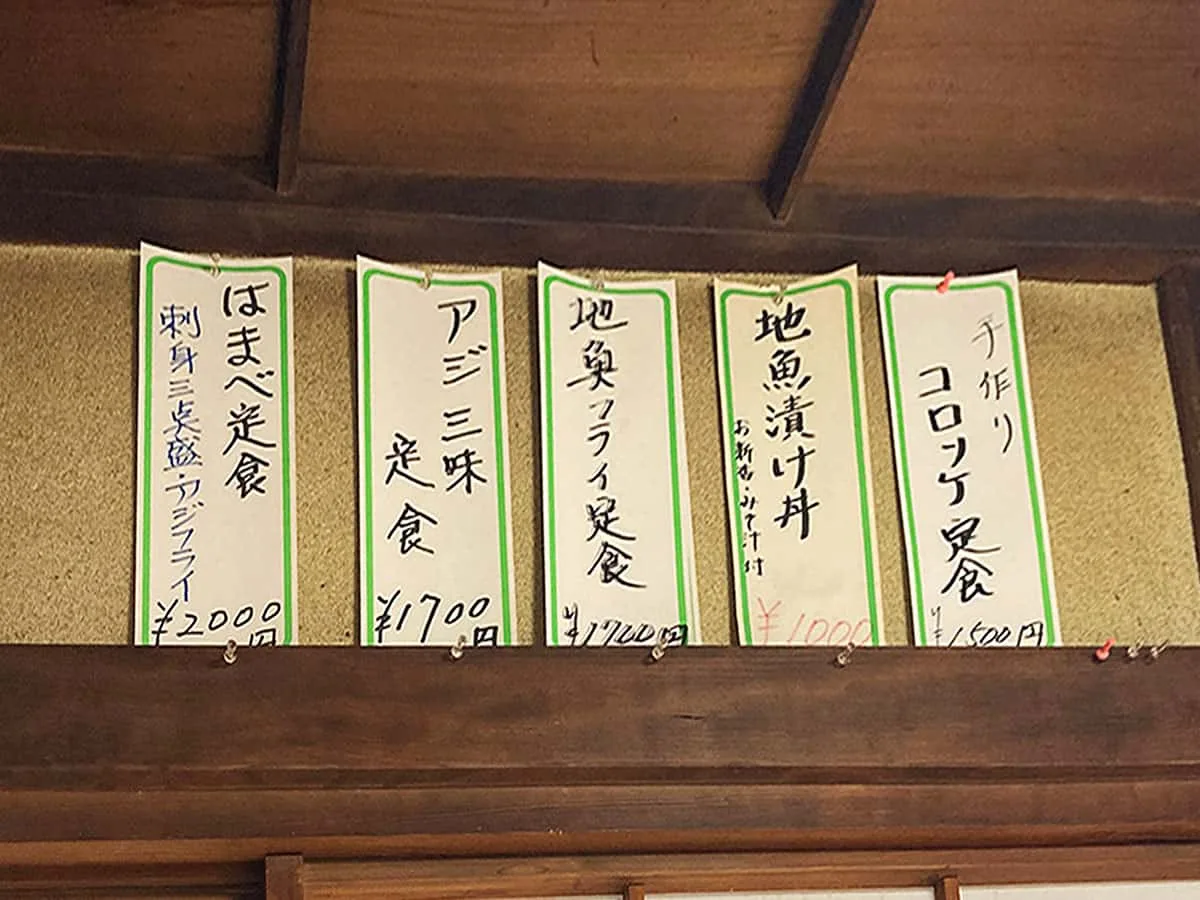 手作り
コロッケ定食
¥1500円
地魚漬け丼
お新香・みそ汁付
¥1000
地魚フライ定食
¥1700円
アジ三味
定食
¥1700円
はまべ定食
刺身三点盛・アジフライ
¥2000円